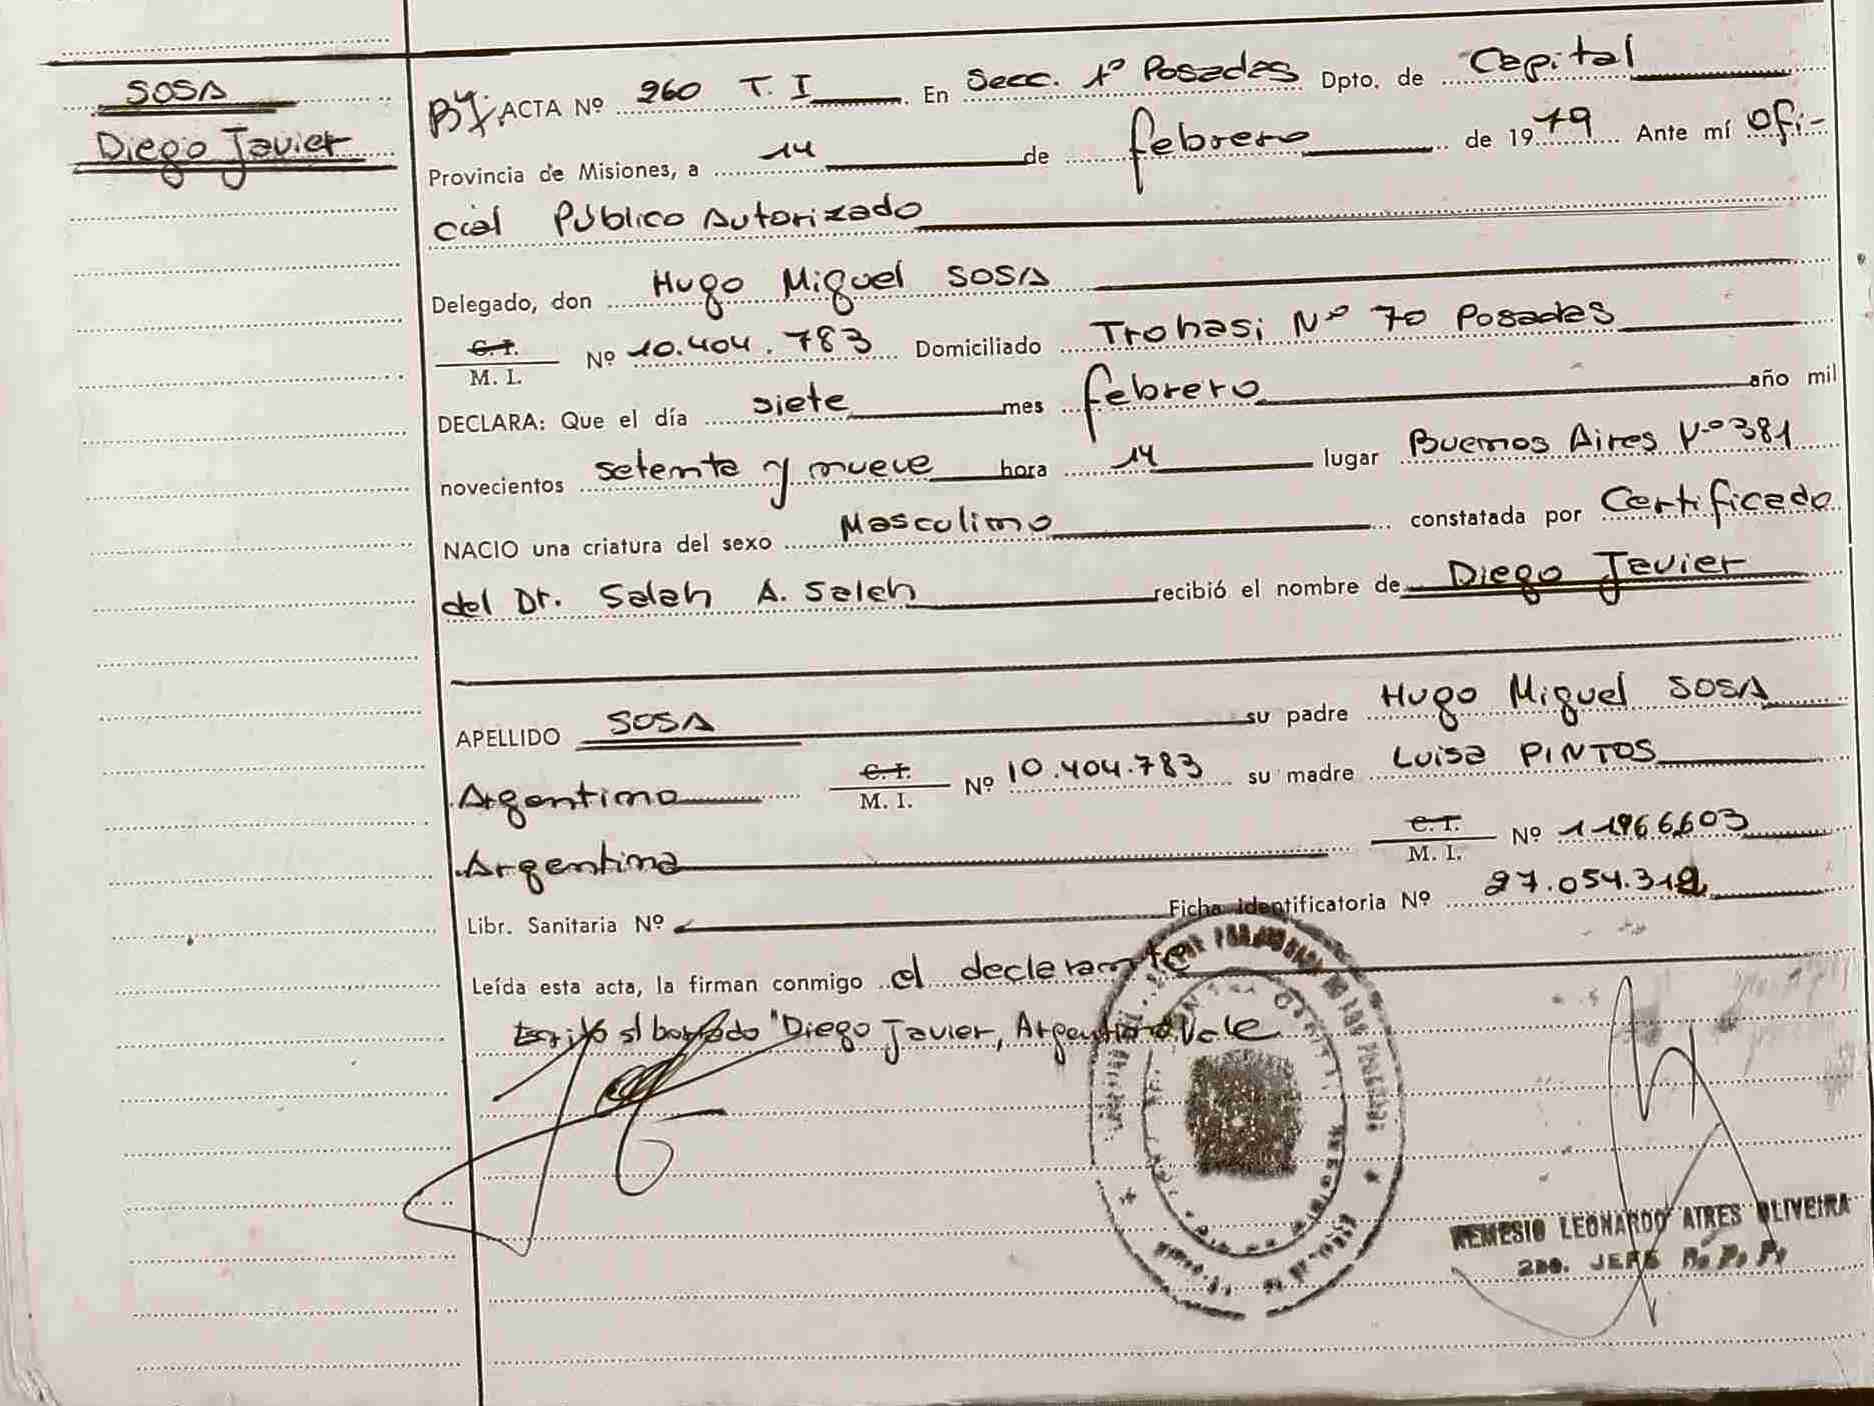 SOSA
Diego Javier
ACTA Nº 260 T. I En Secc. 1º Posadas Dpto. de Capital
Provincia de Misiones, a 14 de febrero de 1979 Ante mí Ofi-
cial Público Autorizado
Delegado, don Hugo Miguel SOSA
C.I.
M. I. Nº 10.404.783 Domiciliado Trohasi Nº 70 Posadas
DECLARA: Que el día siete mes febrero año mil
novecientos setenta y nueve hora 14 lugar Buenos Aires Nº 381
NACIO una criatura del sexo Masculino constatada por Certificado
del Dr. Saleh A. Saleh recibió el nombre de Diego Javier
APELLIDO SOSA su padre Hugo Miguel SOSA
Argentino C.I. M. I. Nº 10.404.783 su madre Luisa PINTOS
Argentina C.I. M. I. Nº 11966603
Libr. Sanitaria Nº Ficha Identificatoria Nº 27.054.312
Leída esta acta, la firman conmigo el declarante
Escrito s/ borrado "Diego Javier, Argentino Vale
LEONARDO AIRES OLIVEIRA
2DO. JEFE